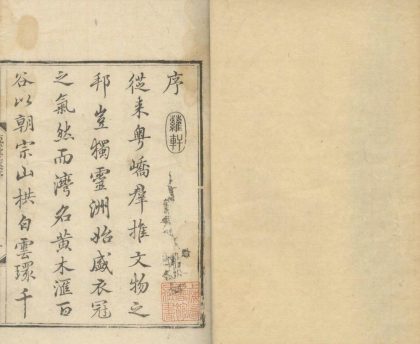 序
蘿軒
從来粤嶠羣推文物之
邦豈獨靈洲始盛衣冠
之氣然而灣名黃木滙百
谷以朝宗山栱白雲環千